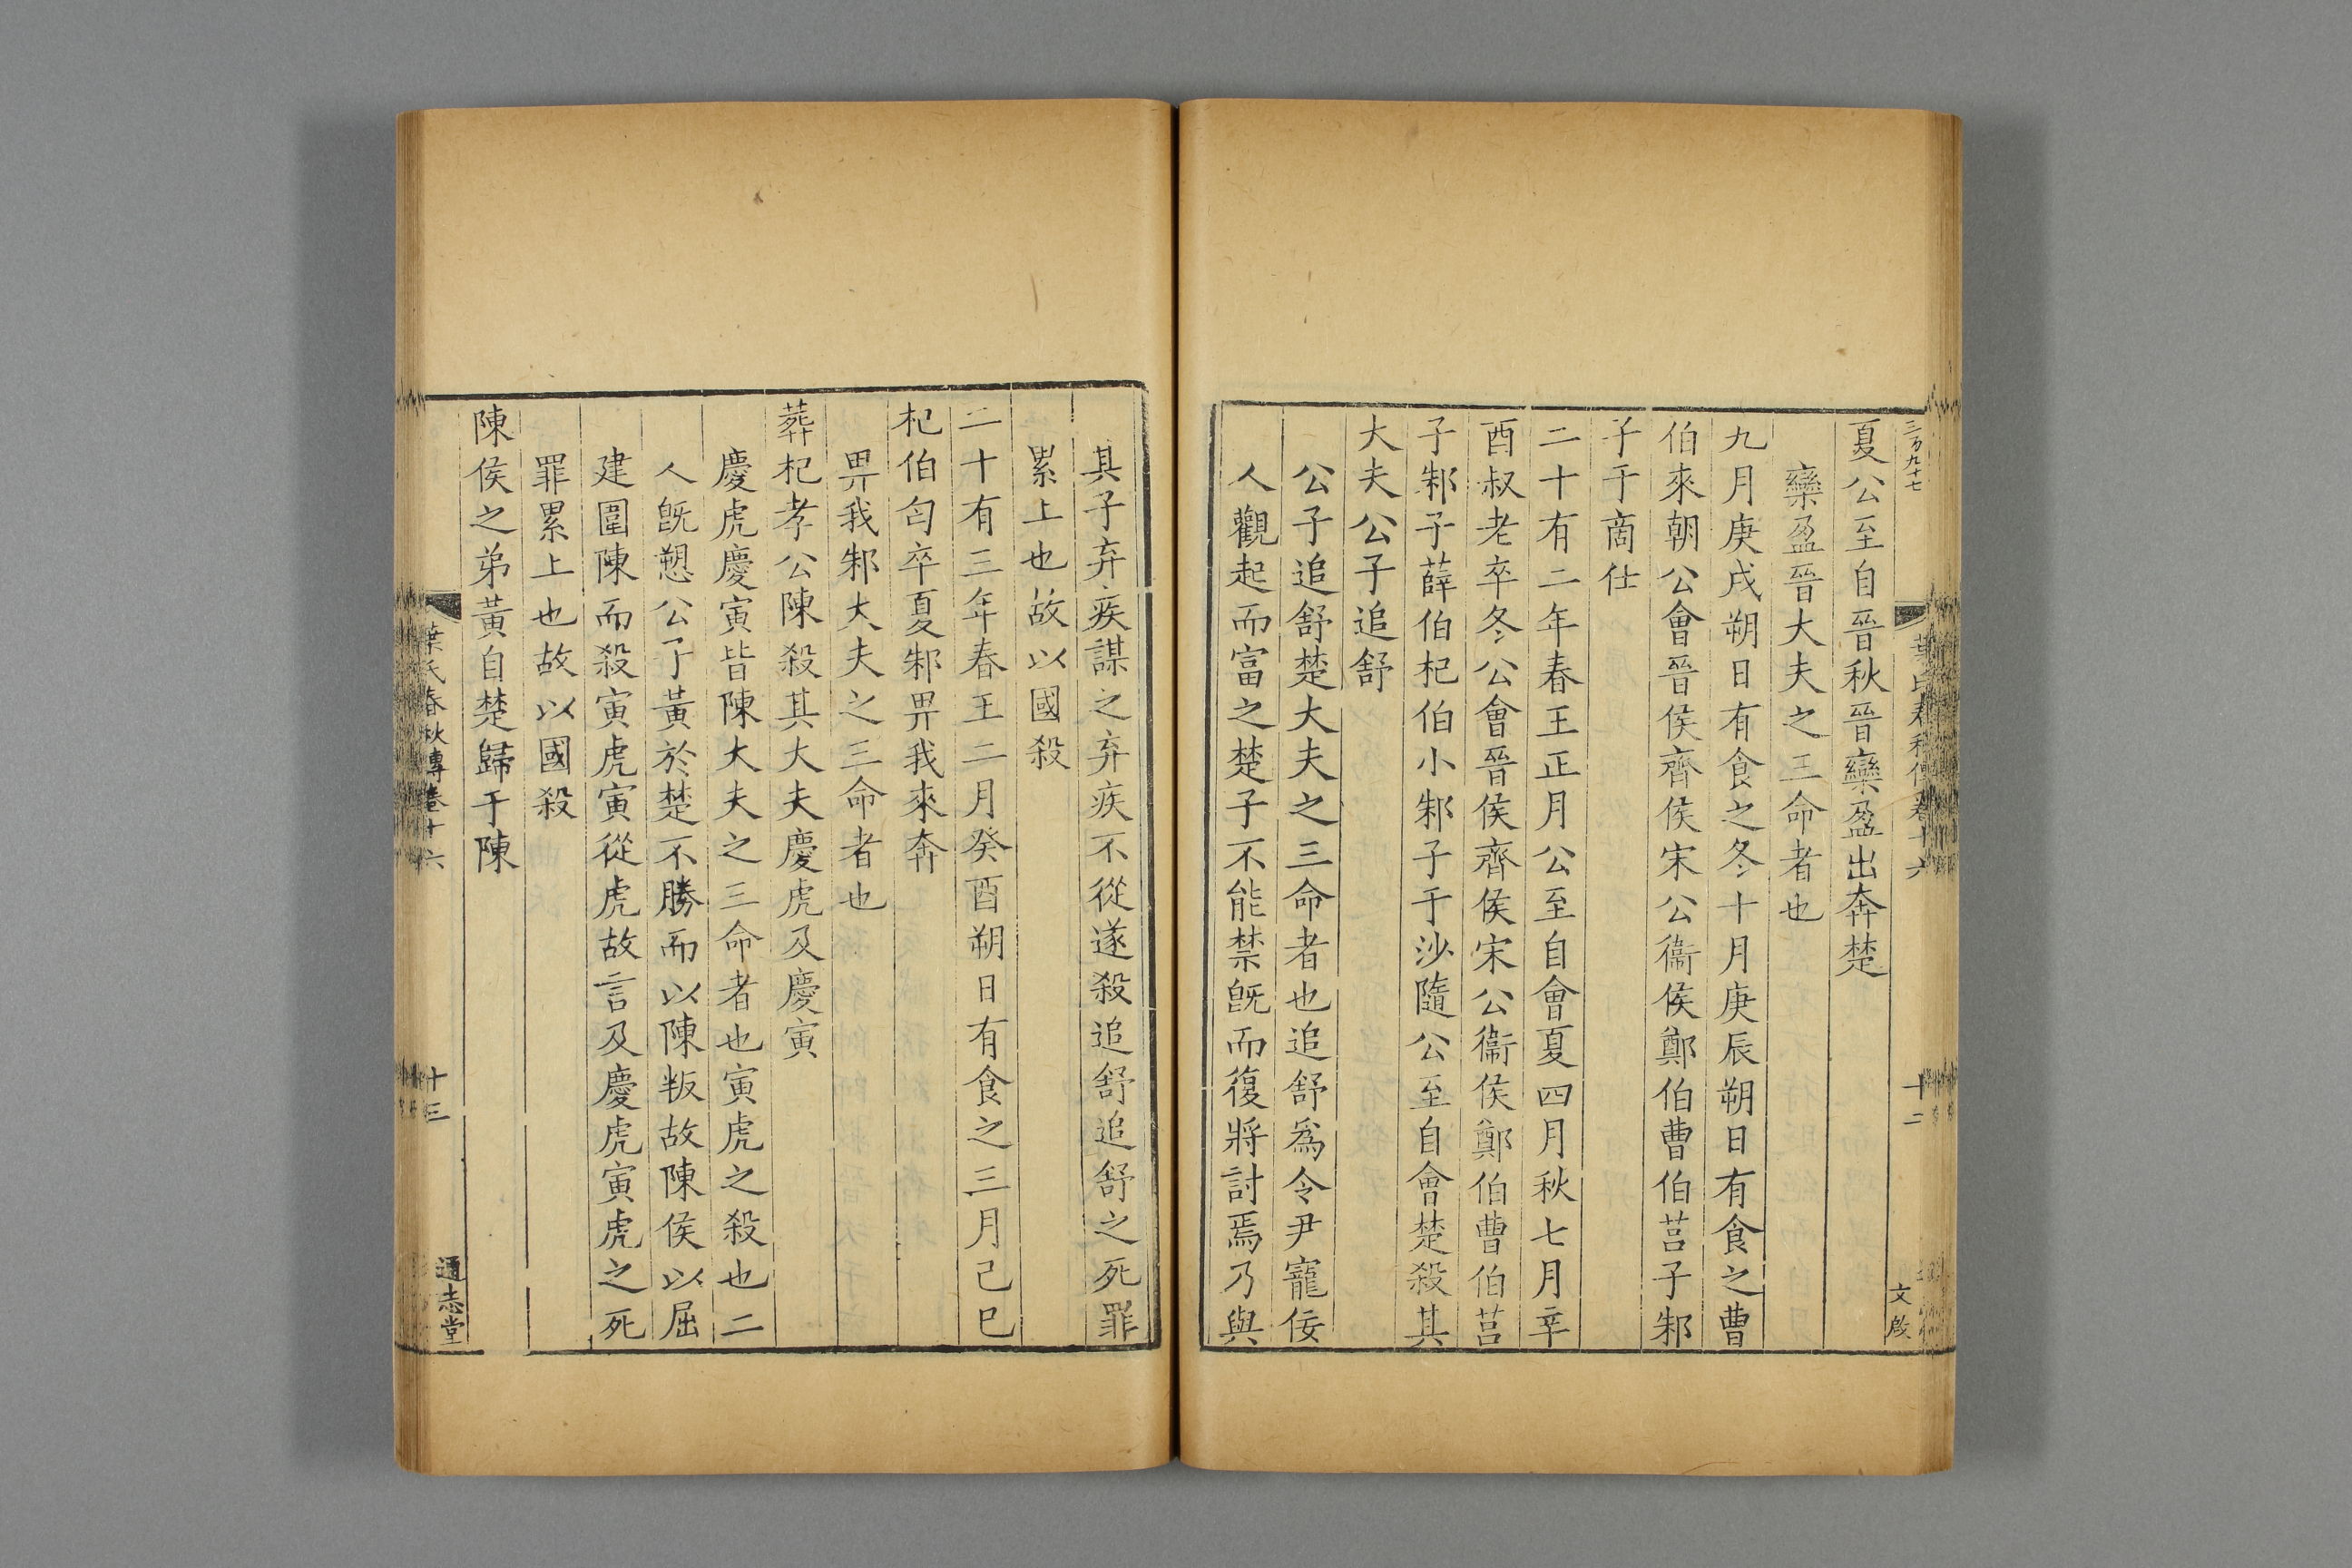 三百九十七
葉氏春秋傳卷十六
十二
文啟
夏公至自晉秋晉欒盈出奔楚
欒盈晉大夫之三命者也
九月庚戌朔日有食之冬十月庚辰朔日有食之曹
伯來朝公會晉侯齊侯宋公衞侯鄭伯曹伯莒子邾
子于商任
二十有二年春王正月公至自會夏四月秋七月辛
酉叔老卒冬公會晉侯齊侯宋公衞侯鄭伯曹伯莒
子邾子薛伯杞伯小邾子于沙隨公至自會楚殺其
大夫公子追舒
公子追舒楚大夫之三命者也追舒爲令尹寵佞
人觀起而富之楚子不能禁旣而復將討焉乃與
其子弃疾謀之弃疾不從遂殺追舒追舒之死罪
累上也故以國殺
二十有三年春王二月癸酉朔日有食之三月己巳
杞伯匄卒夏邾畀我來奔
畀我邾大夫之三命者也
葬杞孝公陳殺其大夫慶虎及慶寅
慶虎慶寅皆陳大夫之三命者也寅虎之殺也二
人旣愬公子黃於楚不勝而以陳叛故陳侯以屈
建圍陳而殺寅虎寅從虎故言及慶虎寅虎之死
罪累上也故以國殺
陳侯之弟黃自楚歸于陳
葉氏春秋傳卷十六
十三
通志堂